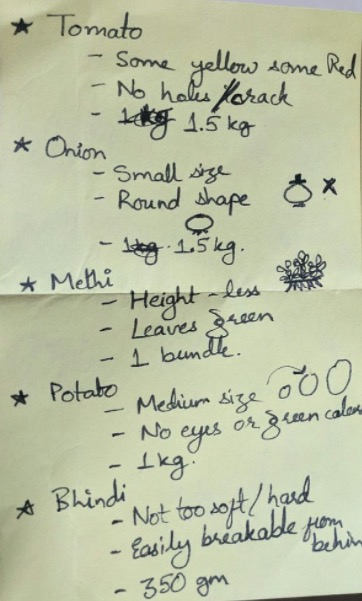 ★ Tomato
- Some yellow some Red
- No holes / crack
- 1.5 kg
★ Onion
- Small size
- Round shape
- 1.5 kg.
★ Methi
- Height - less
- Leaves green
- 1 bundle.
★ Potato
- Medium size
- No eyes or green color
- 1 kg.
★ Bhindi
- Not too soft / hard
- Easily breakable from
behin
- 350 gm